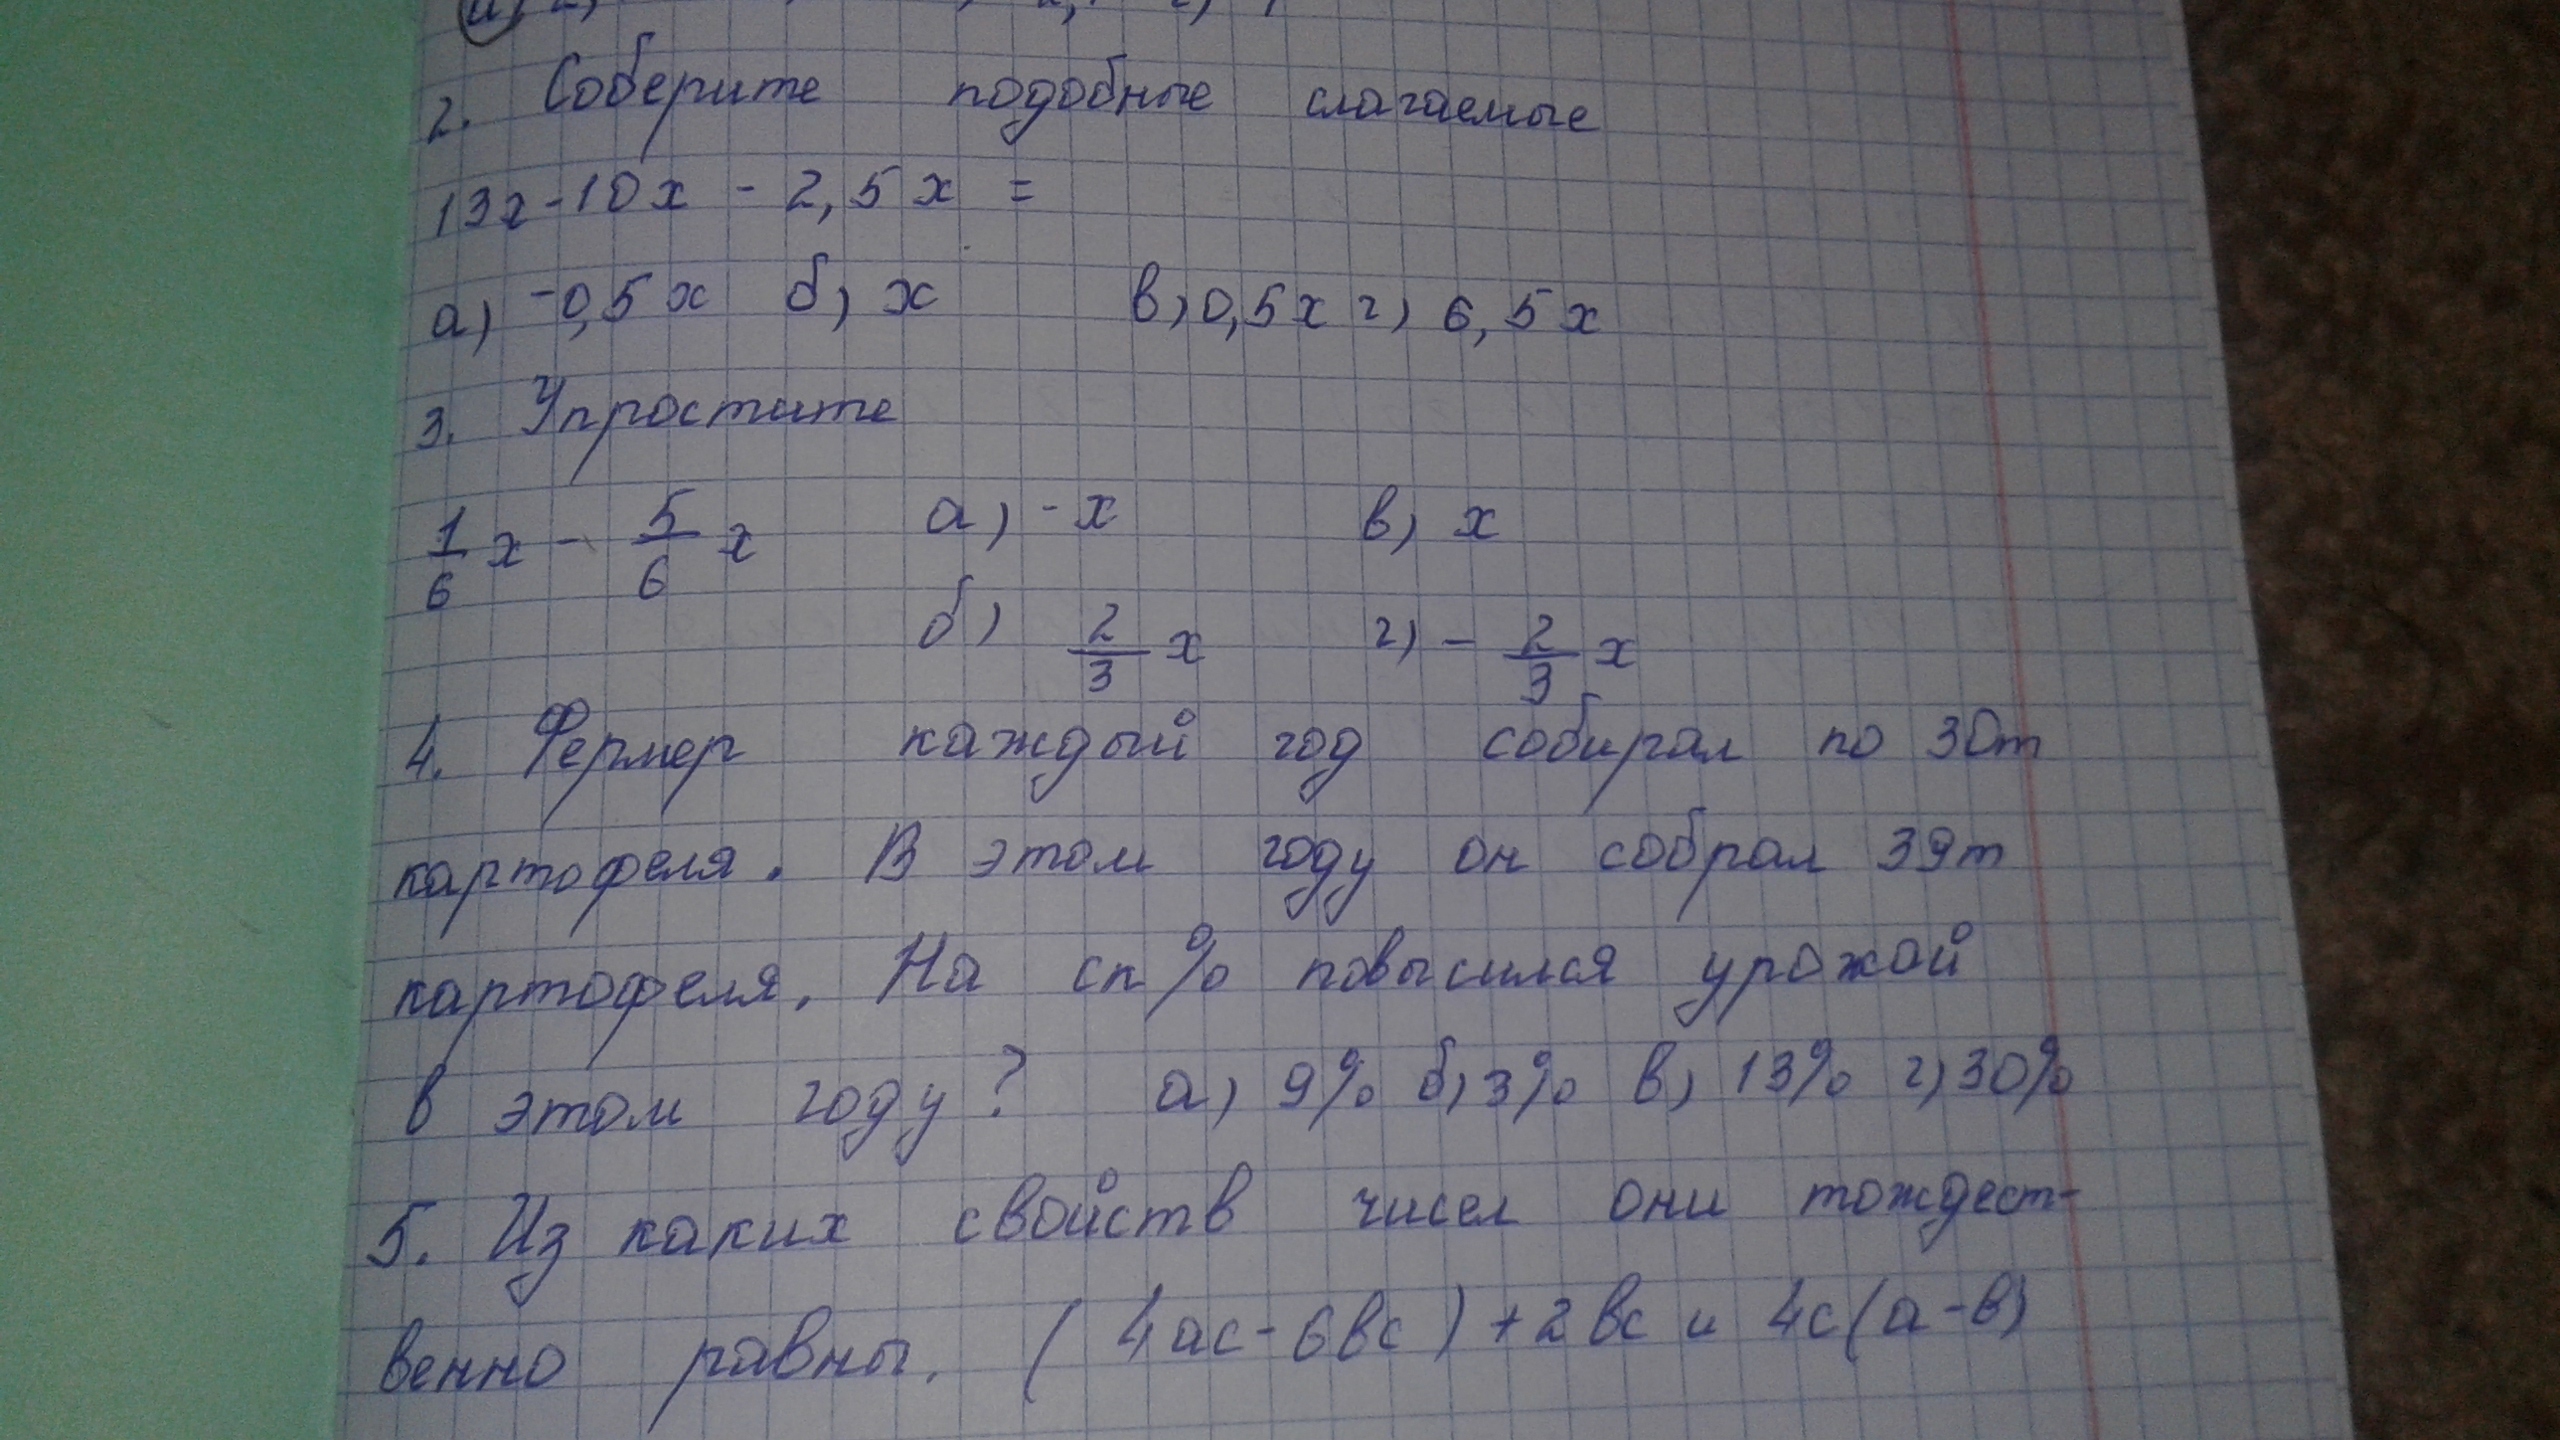 2. Соберите подобные слагаемые
13х - 10х - 2,5х =
а) -0,5х б) х в) 0,5х г) 6,5х
3. Упростите
1/6 х - 5/6 х а) - х в) х
б) 2/3 х г) - 2/3 х
4. Фермер каждый год собирал по 30т
картофеля. В этом году он собрал 39т
картофеля, На ск% повысился урожай
в этом году? а) 9% б) 3% в) 13% г) 30%
5. Из каких свойств чисел они тождест-
венно равны. (4ас-6вс)+2вс и 4с(а-в)